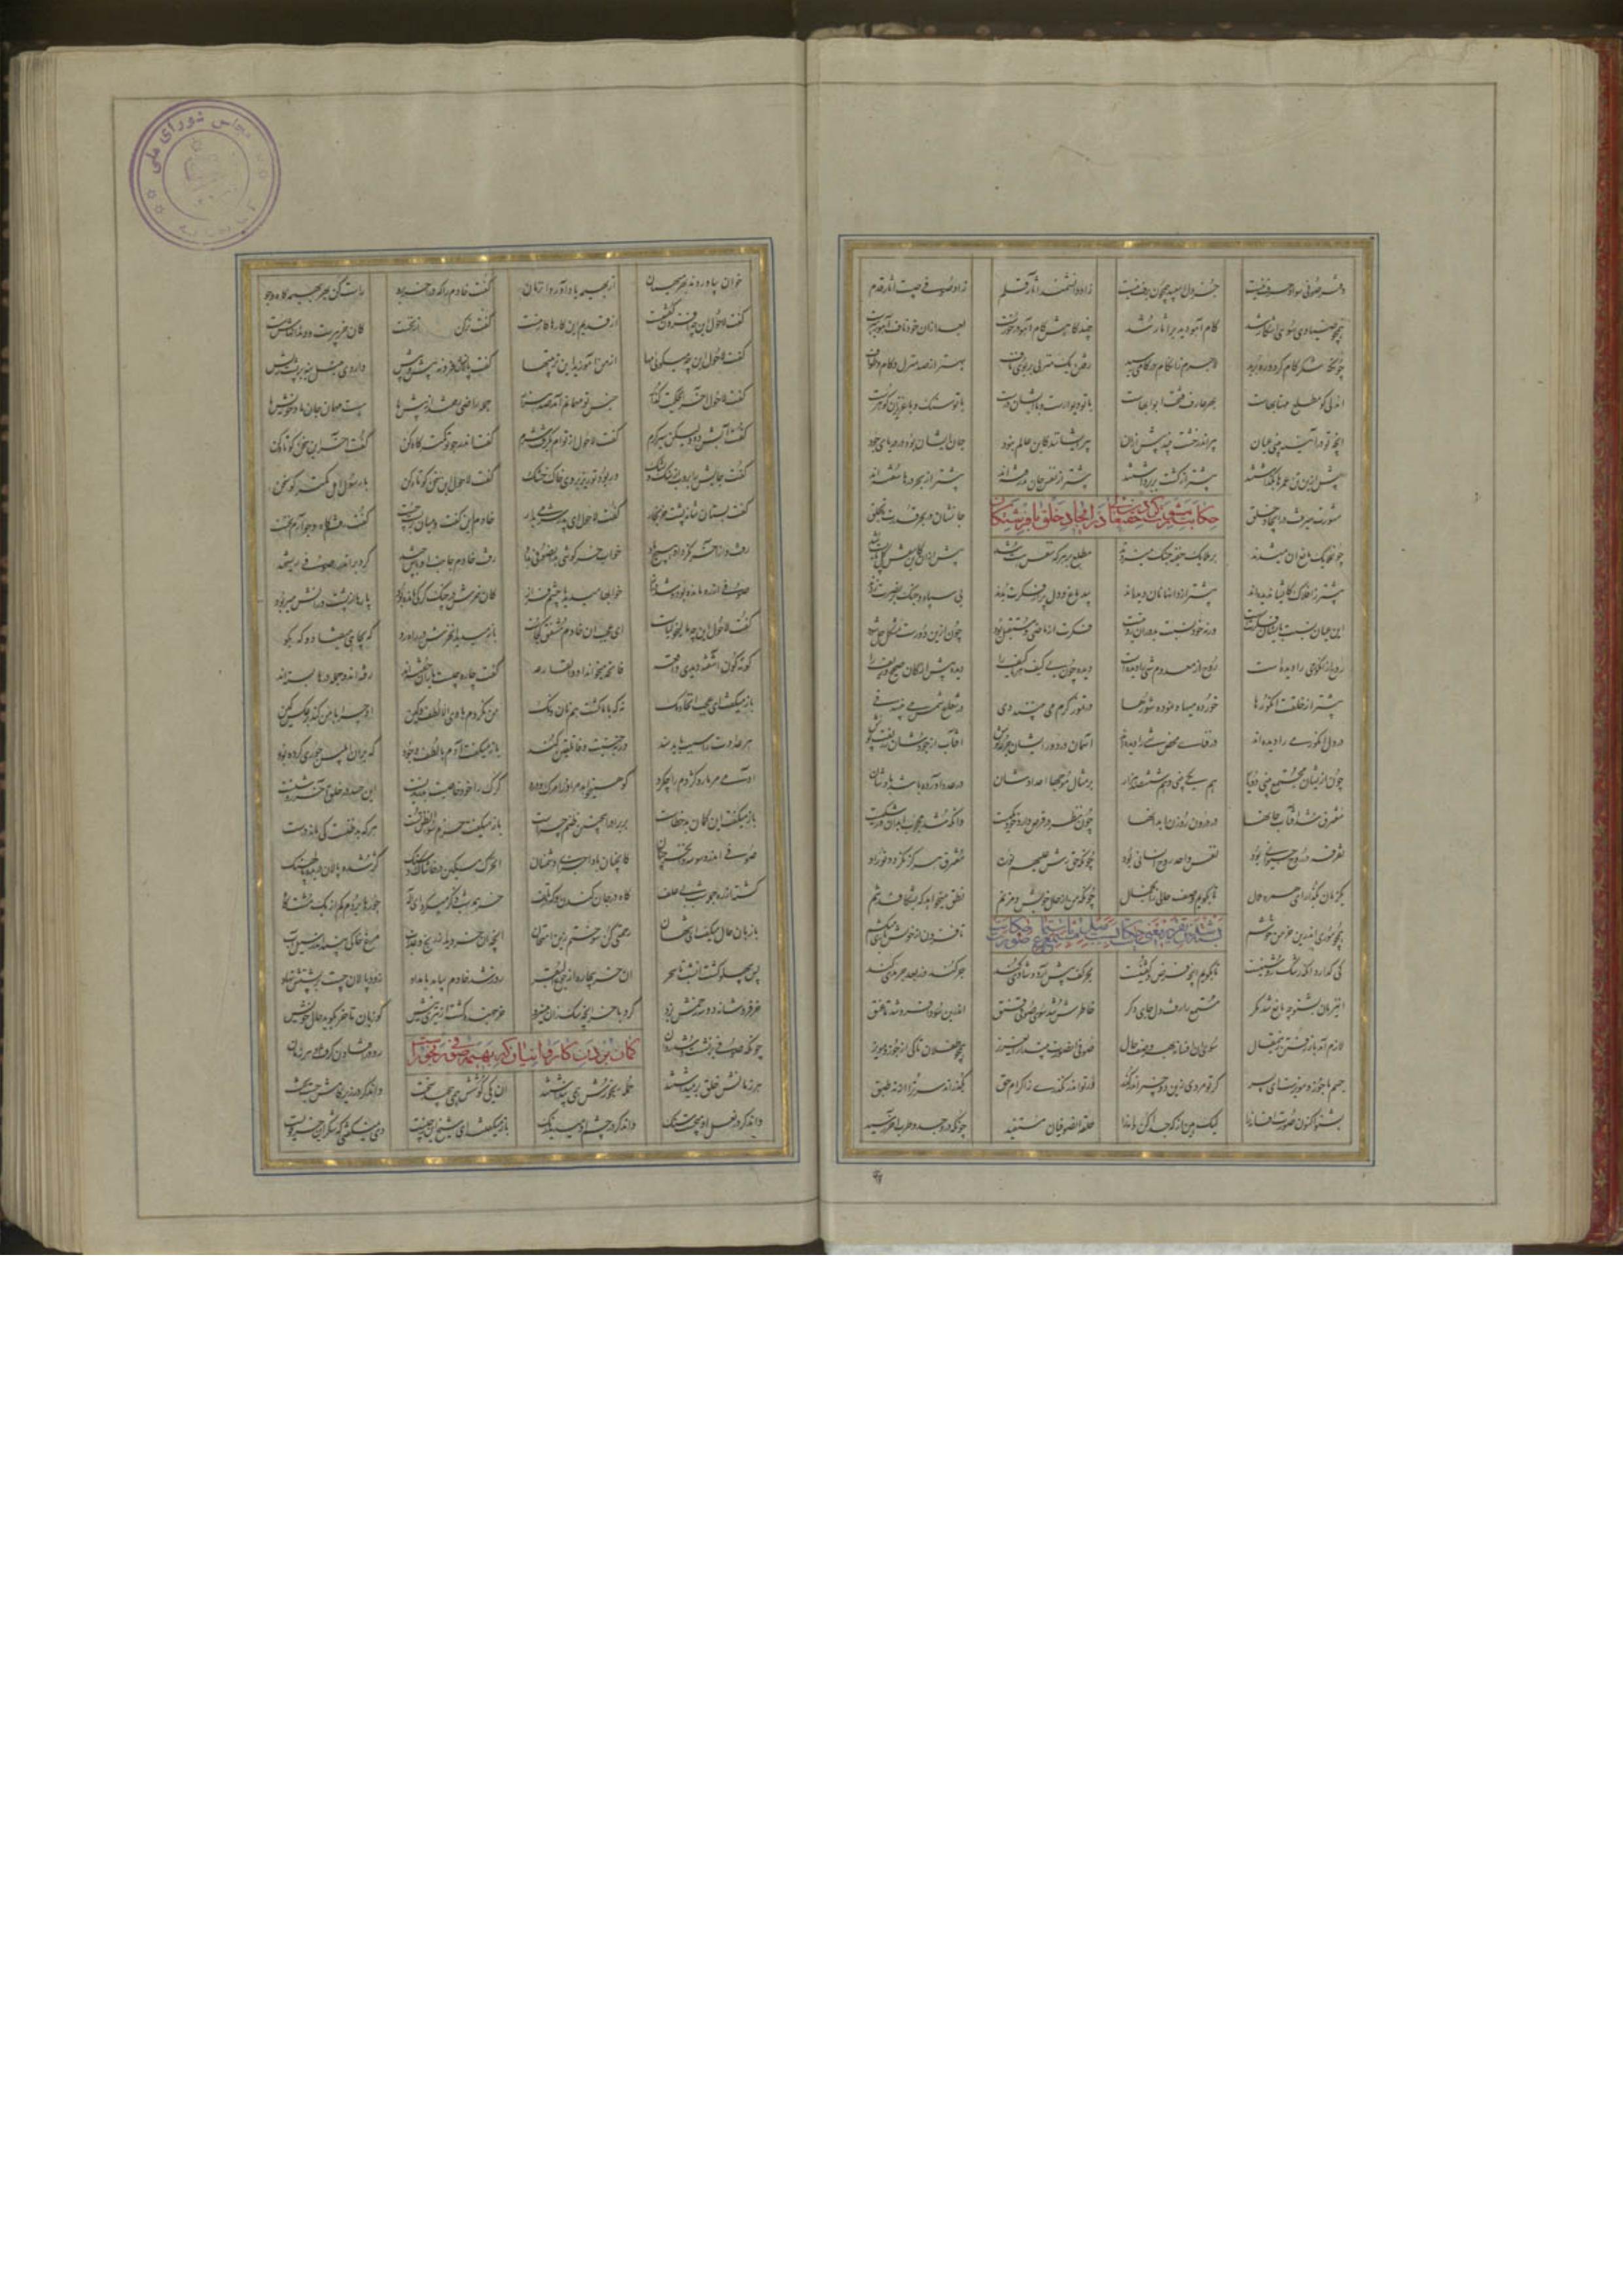 دفتر صوفی سواد و حرف نیست جز دل اسپید همچون برف نیست زاد دانشمند آثار قلم زاد صوفی چیست آثار قدم
همچو صیادی سوی اشکار شد گام آهو دید بر آثار شد چندگاهش گام آهو درخورست بعد از آن خود ناف آهو رهبرست
چونکه شکر گام کرد و ره برید لاجرم زان گام در کامی رسید رفتن یک منزلی بر بوی ناف بهتر از صد منزل و گام و طواف
آن دلی کو مطلع مهتابهاست بهر عارف فتحت ابوابهاست با تو دیوارست و با ایشان درست با تو سنگ و با عزیزان گوهرست
آنچه تو در آینه بینی عیان پیر اندر خشت بیند پیش از آن پیر ایشانند کاین عالم نبود جان ایشان بود در دریای جود
پیش ازین تن عمرها بگذاشتند پیشتر از کشت بر برداشتند پیشتر از نقش جان پذرفته‌اند پیشتر از بحر درها سفته‌اند
حکایت مشورت کردن حقتعالی در ایجاد خلق با فرشتگان
مشورت میرفت در ایجاد خلق جانشان در بحر قدرت تا بحلق
چون ملایک مانع آن میشدند بر ملایک خفیه خنبک میزدند مطلع بر هر که نقش هست شد پیش از آن کاین نفس کل پابست شد
پیشتر ز افلاک کیوان دیده‌اند پیشتر از دانها نان دیده‌اند بی دماغ و دل پر از فکرت بدند بی سپاه و جنگ بر نصرت زدند
این عیان نسبت بایشان فکرتست ورنه خود نسبت بدوران رویتست فکرت از ماضی و مستقبل بود چون ازین دو رست مشکل حل شود
روح از انگور می را دیده است روح از معدوم شی را دیده است دیده چون بی کیف هر باکیف را دیده پیش از کان صحیح و زیف را
پیشتر از خلقت انگورها خورده میها و نموده شورها در تموز گرم می بینند دی در شعاع شمس می بینند فی
در دل انگور می را دیده‌اند در فنای محض شی را دیده‌اند آسمان در دور ایشان جرعه نوش آفتاب از جودشان زربفت پوش
چون ازیشان مجتمع بینی دو یار هم یکی باشند و هم ششصد هزار بر مثال موجها اعدادشان در عدد آورده باشد بادشان
مفترق شد آفتاب جانها در درون روزن ابدانها چون نظر در قرص داری خود یکیست وانکه شد محجوب ابدان در شکیست
تفرقه در روح حیوانی بود نفس واحد روح انسانی بود چونکه حق رش علیهم نوره مفترق هرگز نگردد نور او
یکزمان بگذار ای همره ملال تا بگویم وصف خالی زان جمال
همچو موری اندرین خرمن خوشم تا فزون از خویش باری میکشم
کی گذارد آنکه رشک روشنیست تا بگویم آنچه فرض و گفتنیست بحر کف پیش آرد و سدی کند جر کند وز بعد جر مدی کند
این زمان بشنو چه مانع شد مگر مستمع را رفت دل جای دگر خاطرش شد سوی صوفی قنق اندرین سودا فرو شد تا عنق
لازم آمد باز رفتن زین مقال سوی آن افسانه بهر وصف حال صوفی آن صورت مپندار ای عزیز همچو طفلان تا کی از جوز و مویز
جسم ما جوز و مویزست ای پسر گر تو مردی زین دو چیز اندر گذر ور تو اندر نگذری ز اکرام حق بگذراند مر ترا از نه طبق
بشنو اکنون صورت افسانه را لیک هین از که جدا کن دانه را حلقه آن صوفیان مستفید چونکه در وجد و طرب آخر رسید
خوان بیاوردند بهر میهمان از بهیمه یاد آورد آن زمان گفت خادم را که در آخر برو راست کن بهر بهیمه کاه و جو
گفت لاحول این چه افزون گفتنست از قدیم این کارها کار منست گفت تر کن آن جوش را از نخست کان خر پیرست و دندانهاش سست
گفت لاحول این چه میگویی مها از من آموزند این ترتیبها گفت پالانش فرو نه پیش پیش داروی منبل بنه بر پشت ریش
گفت لاحول آخر ای حکمت گذار جنس تو مهمانم آمد صد هزار جمله راضی رفته‌اند از پیش ما هست مهمان جان ما و خویش ما
گفت آبش ده ولیکن شیر گرم گفت لاحول از توام بگرفت شرم گفت اندر جو تو کمتر کاه کن گفت لاحول این سخن کوتاه کن
گفت جایش را بروب از سنگ و پشک ور بود تر ریز بروی خاک خشک گفت لاحول ای پدر لاحول کن با رسول اهل کمتر گو سخن
گفت بستان شانه پشت خر بخار گفت لاحول ای پدر شرمی بدار خادم این گفت و میان بست چست گفت رفتم کاه و جو آرم نخست
رفت و از آخر نکرد او هیچ یاد خواب خرگوشی بدان صوفی بداد رفت خادم جانب اوباش چند کرد بر اندرز صوفی ریشخند
صوفی از ره مانده بود و شد دراز خوابها میدید با چشم فراز کان خرش در چنگ گرگی مانده بود پارها از پشت و رانش میربود
گفت لاحول این چه مالیخولیاست ای عجب آن خادم مشفق کجاست باز میدید آن خرش در راه رو گه بچاهی میفتاد و گه بگو
گونه گون ناخوش دیدی واقعه فاتحه میخواند او والقارعه گفت چاره چیست یاران جسته‌اند رفته‌اند و جمله درها بسته‌اند
باز میگفت ای عجب آن خادمک نه که با ما گشت هم نان و نمک من نکردم با وی الا لطف و لین او چرا با من کند برعکس کین
هر عداوت را سبب باید سند ورنه جنسیت وفا تلقین کند باز میگفت آدم با لطف و جود کی بر آن ابلیس جوری کرده بود
آدمی مر مار و کژدم را چه کرد کو همیخواهد مر او را مرگ و درد گرگ را خود خاصیت بدریدنست این حسد در خلق آخر روشنست
باز میگفت این گمان بد خطاست بر برادر اینچنین ظنم چراست باز میگفت حزم سوء الظن تست هر که بدظن نیست کی ماند درست
صوفی اندر وسوسه وان خر چنان کانچنان باد اجزای دشمنان آن خر مسکین میان خاک و سنگ کژ شده پالان دریده پالهنگ
کشته از ره جمله شب بی علف گاه در جان کندن و گه در تلف خر همه شب ذکر میکرد ای اله جو رها کردم کم از یک مشت کاه
با زبان حال میگفت ای شیخان رحمتی که سوختم زین امتحان آنچه آن خر دید از رنج و عذاب مرغ خاکی بیند اندر سیل آب
پس بپهلو گشت آن شب تا سحر آن خر بیچاره از جوع البقر روز شد خادم بیامد بامداد زود پالان جست بر پشتش نهاد
خر فروشانه دو سه زخمش بزد کرد با خر آنچه زان سگ میسزد خر جهنده گشت از تیزی نیش کو زبان تا خر بگوید حال خویش
گمان بردن کاروانیان که بهیمه صوفی رنجورست
چونکه صوفی بر نشست و شد روان رو در افتادن گرفت او هر زمان
هر زمانش خلق برمیداشتند جمله رنجورش همی پنداشتند آن یکی گوشش همی پیچید سخت وان دگر در زیر کامش جست لخت
وان دگر در نعل او میجست سنگ وان دگر در چشم او میدید زنگ باز میگفتند ای شیخ این ز چیست دی نمیگفتی که شکر این خر قویست
مجلس شورای ملی